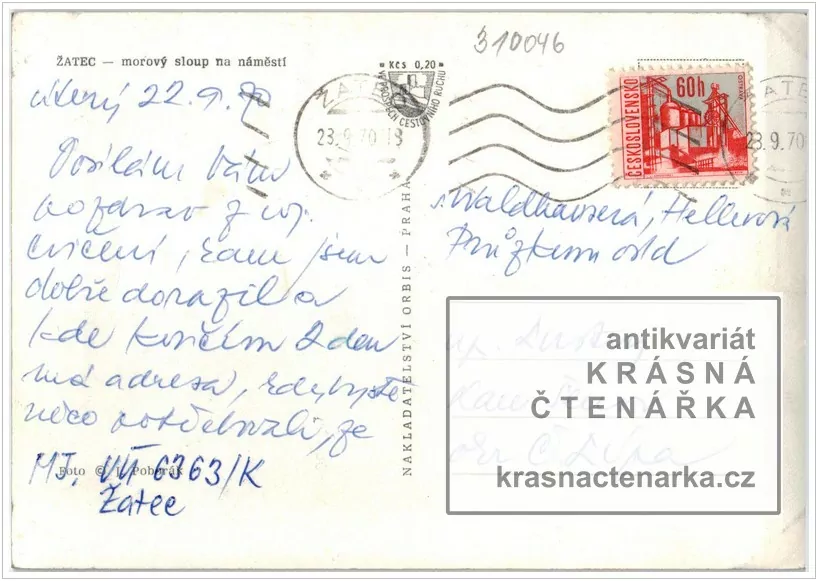 310046
ŽATEC — morový sloup na náměstí
Kčs 0,20
CESTOVNÍHO RUCHU
ŽATEC
23.9.70-18
ČESKOSLOVENSKO
60h
23.9.70
úterý 22.9.70
Posílám Vám
pozdrav z voj.
cvičení, kam jsem
dobře dorazil a
kde končím 2 den
má adresa, kdybyste
něco potřebovali, je
MJ. VÚ 6363/K
Žatec
Foto © J. Poborák
NAKLADATELSTVÍ ORBIS — PRAHA
Waldhauserá, Hellerová
Průzkum odd
antikvariát
KRÁSNÁ
ČTENÁŘKA
krasnactenarka.cz